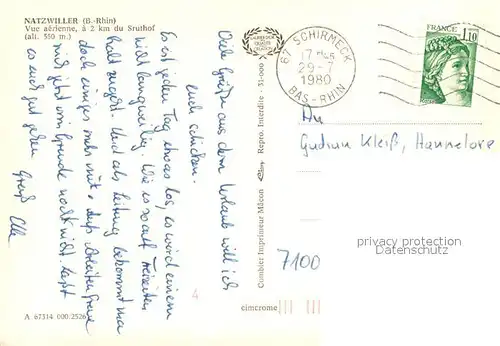 NATZWILLER (B.-Rhin)
Vue aérienne, à 2 km du Sruthof
(alt. 550 m.)
67 SCHIRMECK
29-7
1980
BAS-RHIN
FRANCE
1,10
Viele Grüße aus dem Urlaub will ich
euch schicken.
Es ist jeden Tag etwas los, es wird einem
nicht langweilig. Wie es so auf Freizeiten
halt zugeht. Und als Leitung bekommt man
doch einiges mehr mit. Aufs
mich jetzt im Grunde noch nicht. Laßt
es euch gut gehen
Gruß
An
Gudrun Kleiß, Hannelore
7100
Combier Imprimeur Mâcon
Repro. Interdite - 35-000
cimcrome
A 67314 000.2526
4
privacy protection
Datenschutz